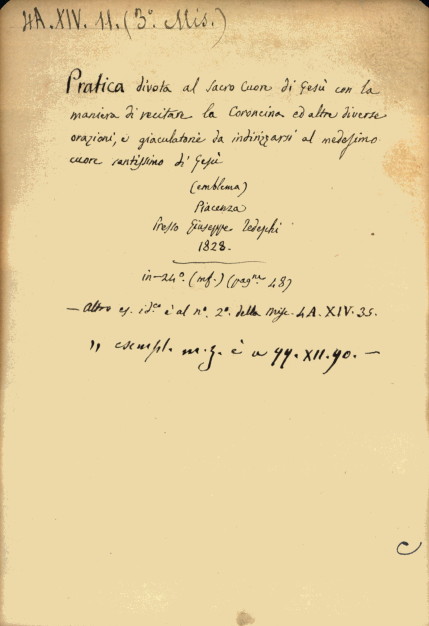 4A.XIV. 11. (3.º Mis.)
Pratica divota al Sacro Cuore di Gesù con la
maniera di recitare la Coroncina ed altre diverse
orazioni, e giaculatorie da indirizzarsi al medesimo
cuore santissimo di Gesù
(emblema)
Piacenza
Presso Giuseppe Tedeschi
1828.
in-24º. (mf.) (pagne 48)
— Altro es. id.co è al nº. 2º. della Misc. 4A.XIV.35.
" esempl. m.z. è a 99.XII.90. —
C